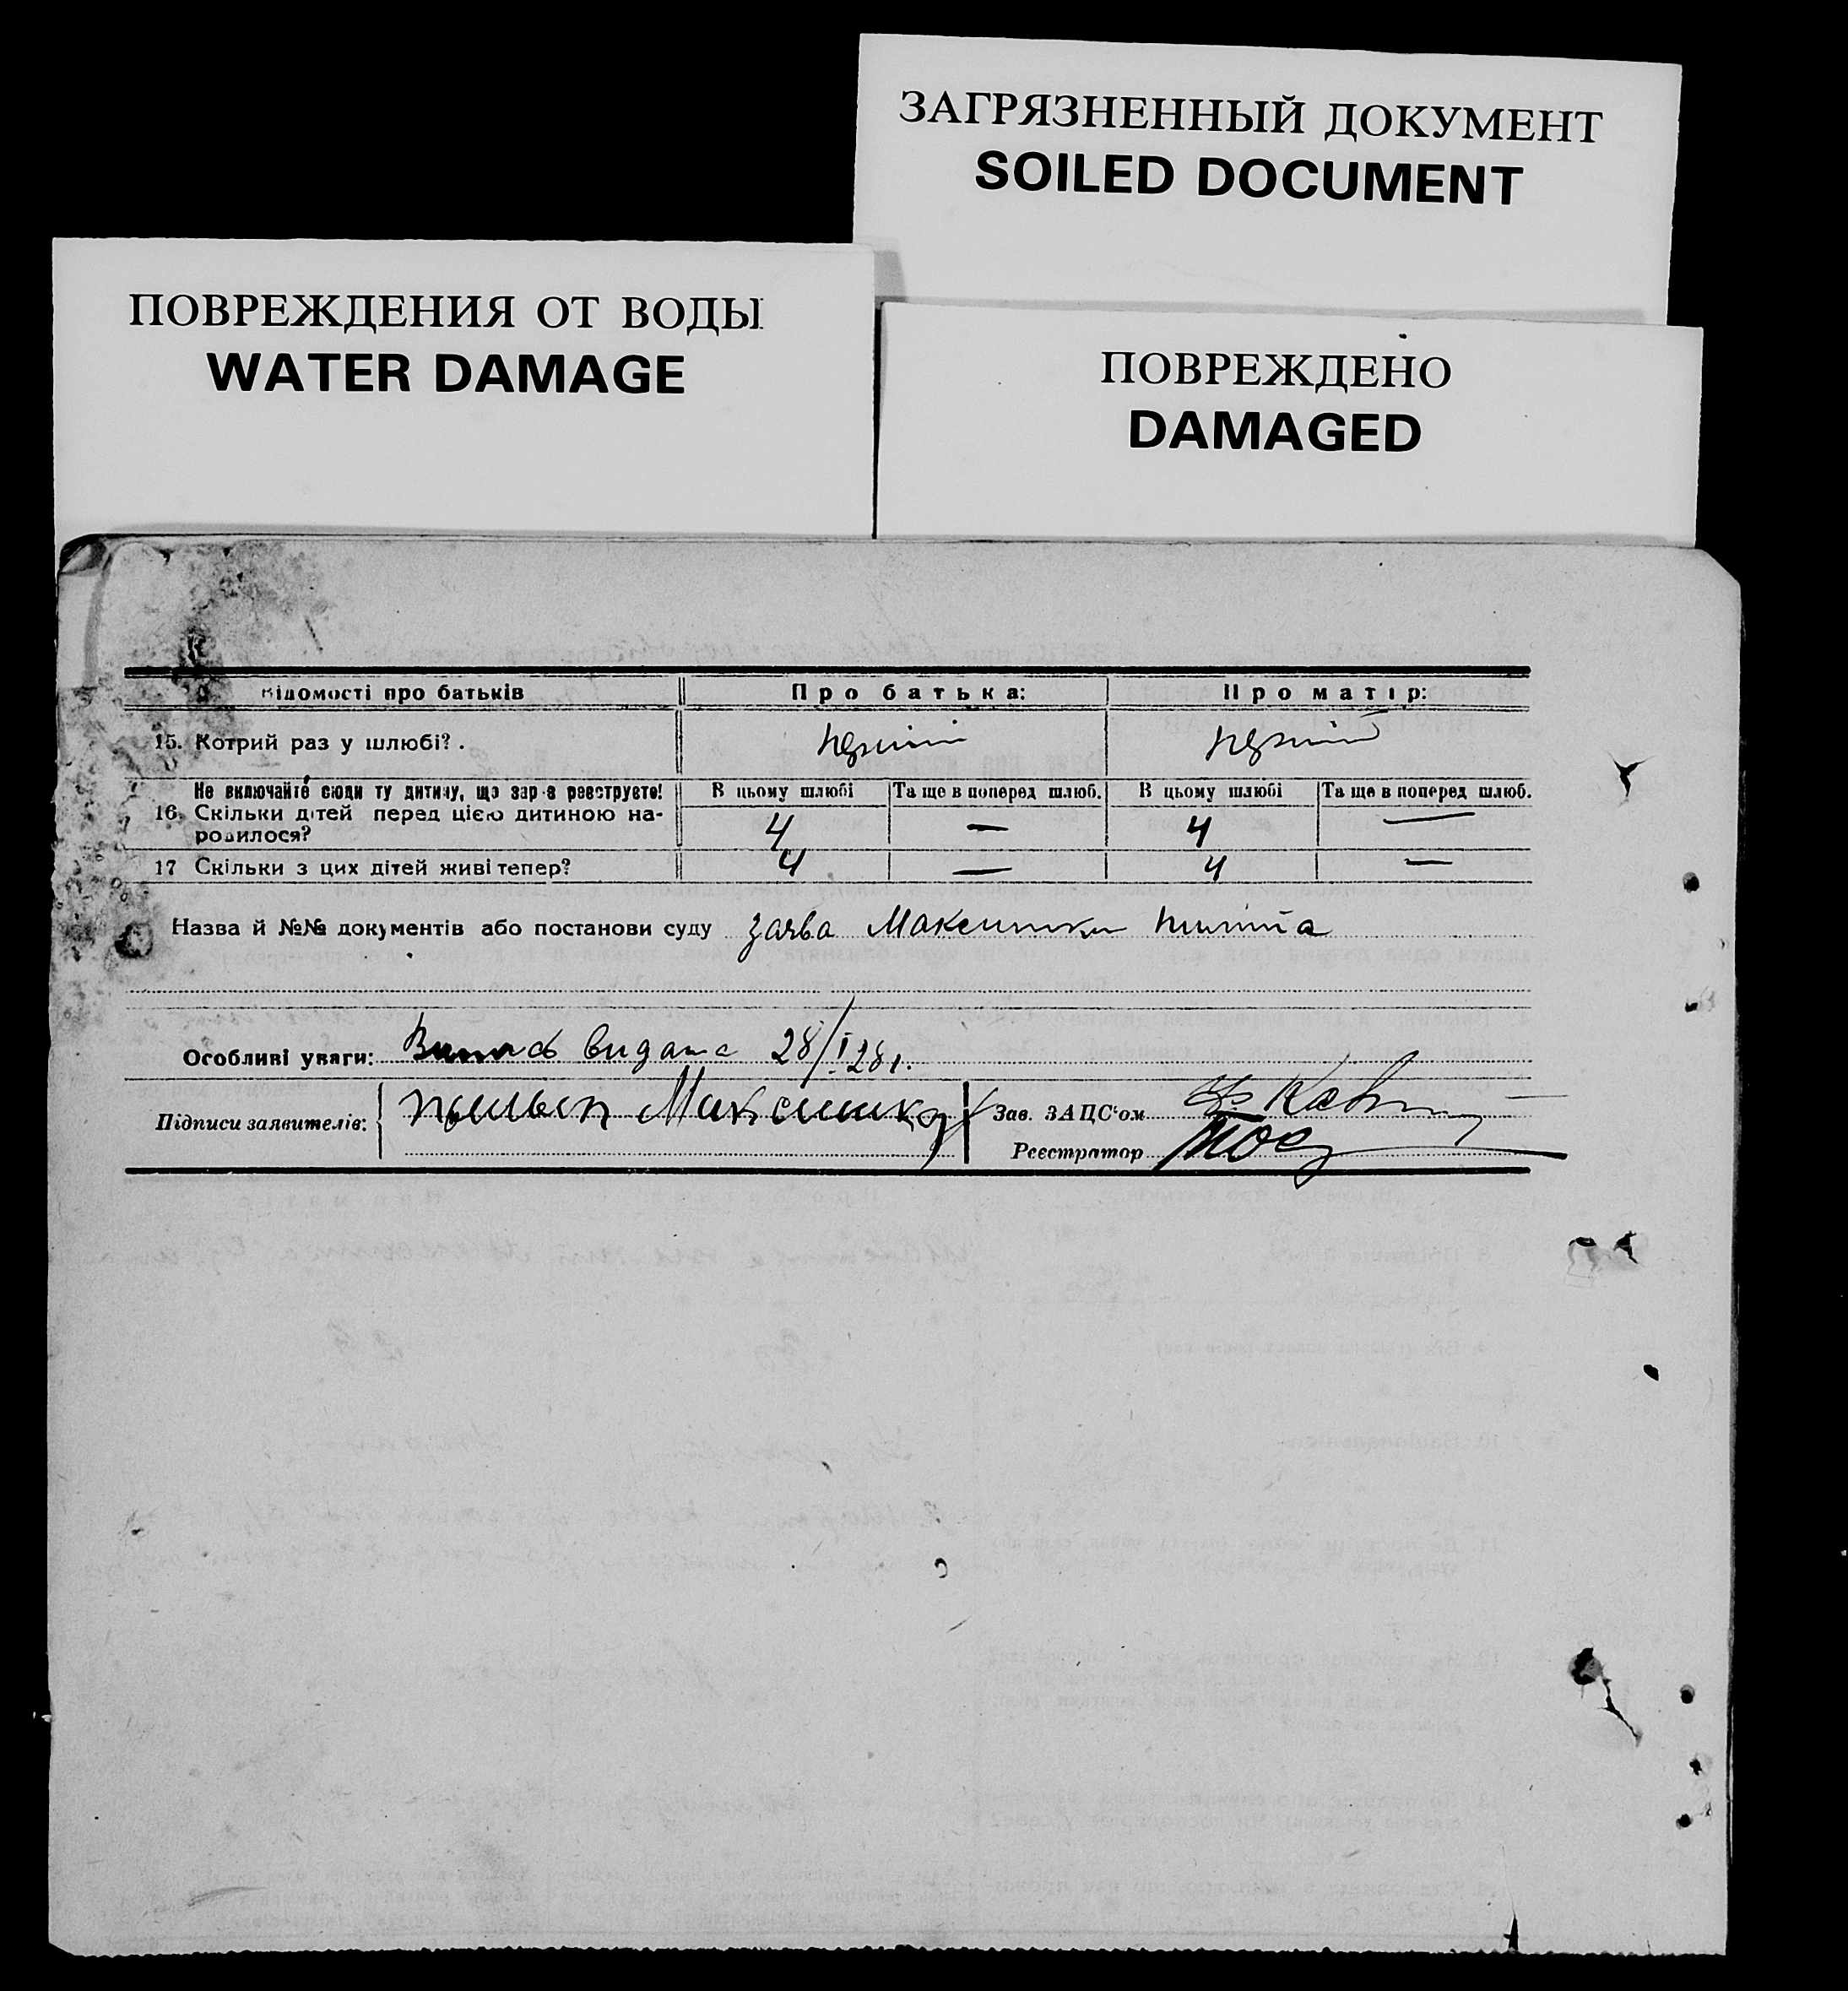 ЗАГРЯЗНЕННЫЙ ДОКУМЕНТ
SOILED DOCUMENT
ПОВРЕЖДЕНИЯ ОТ ВОДЫ
WATER DAMAGE
ПОВРЕЖДЕНО
DAMAGED
Відомості про батьків Про батька: Про матір:
15. Котрий раз у шлюбі? . перший перший
Не включайте сюди ту дитину, що зараз реєструєте! В цьому шлюбі Та ще в поперед шлюб. В цьому шлюбі Та ще в поперед шлюб.
16. Скільки дітей перед цією дитиною на-
родилося? 4 — 4 —
17 Скільки з цих дітей живі тепер? 4 — 4 —
Назва й №№ документів або постанови суду заява Максимки
Особливі уваги: видана 28/I 28 г.
Підписи заявителів: Максимка Зав. ЗАЦС'ом
Реєстратор